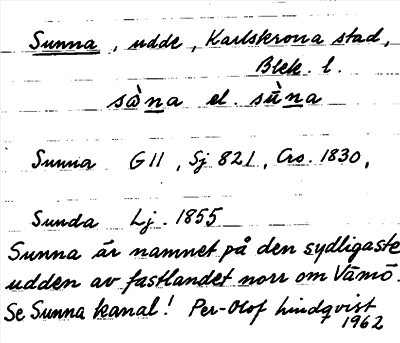 Sunna, udde, Karlskrona stad,
Blek. l.
sὼna el. sǜna
Sunna G11, Sj 821, Cro. 1830,
Sunda Lj. 1855
Sunna är namnet på den sydligaste
udden av fastlandet norr om Vämö.
Se Sunna kanal! Per-Olof Lindqvist
1962